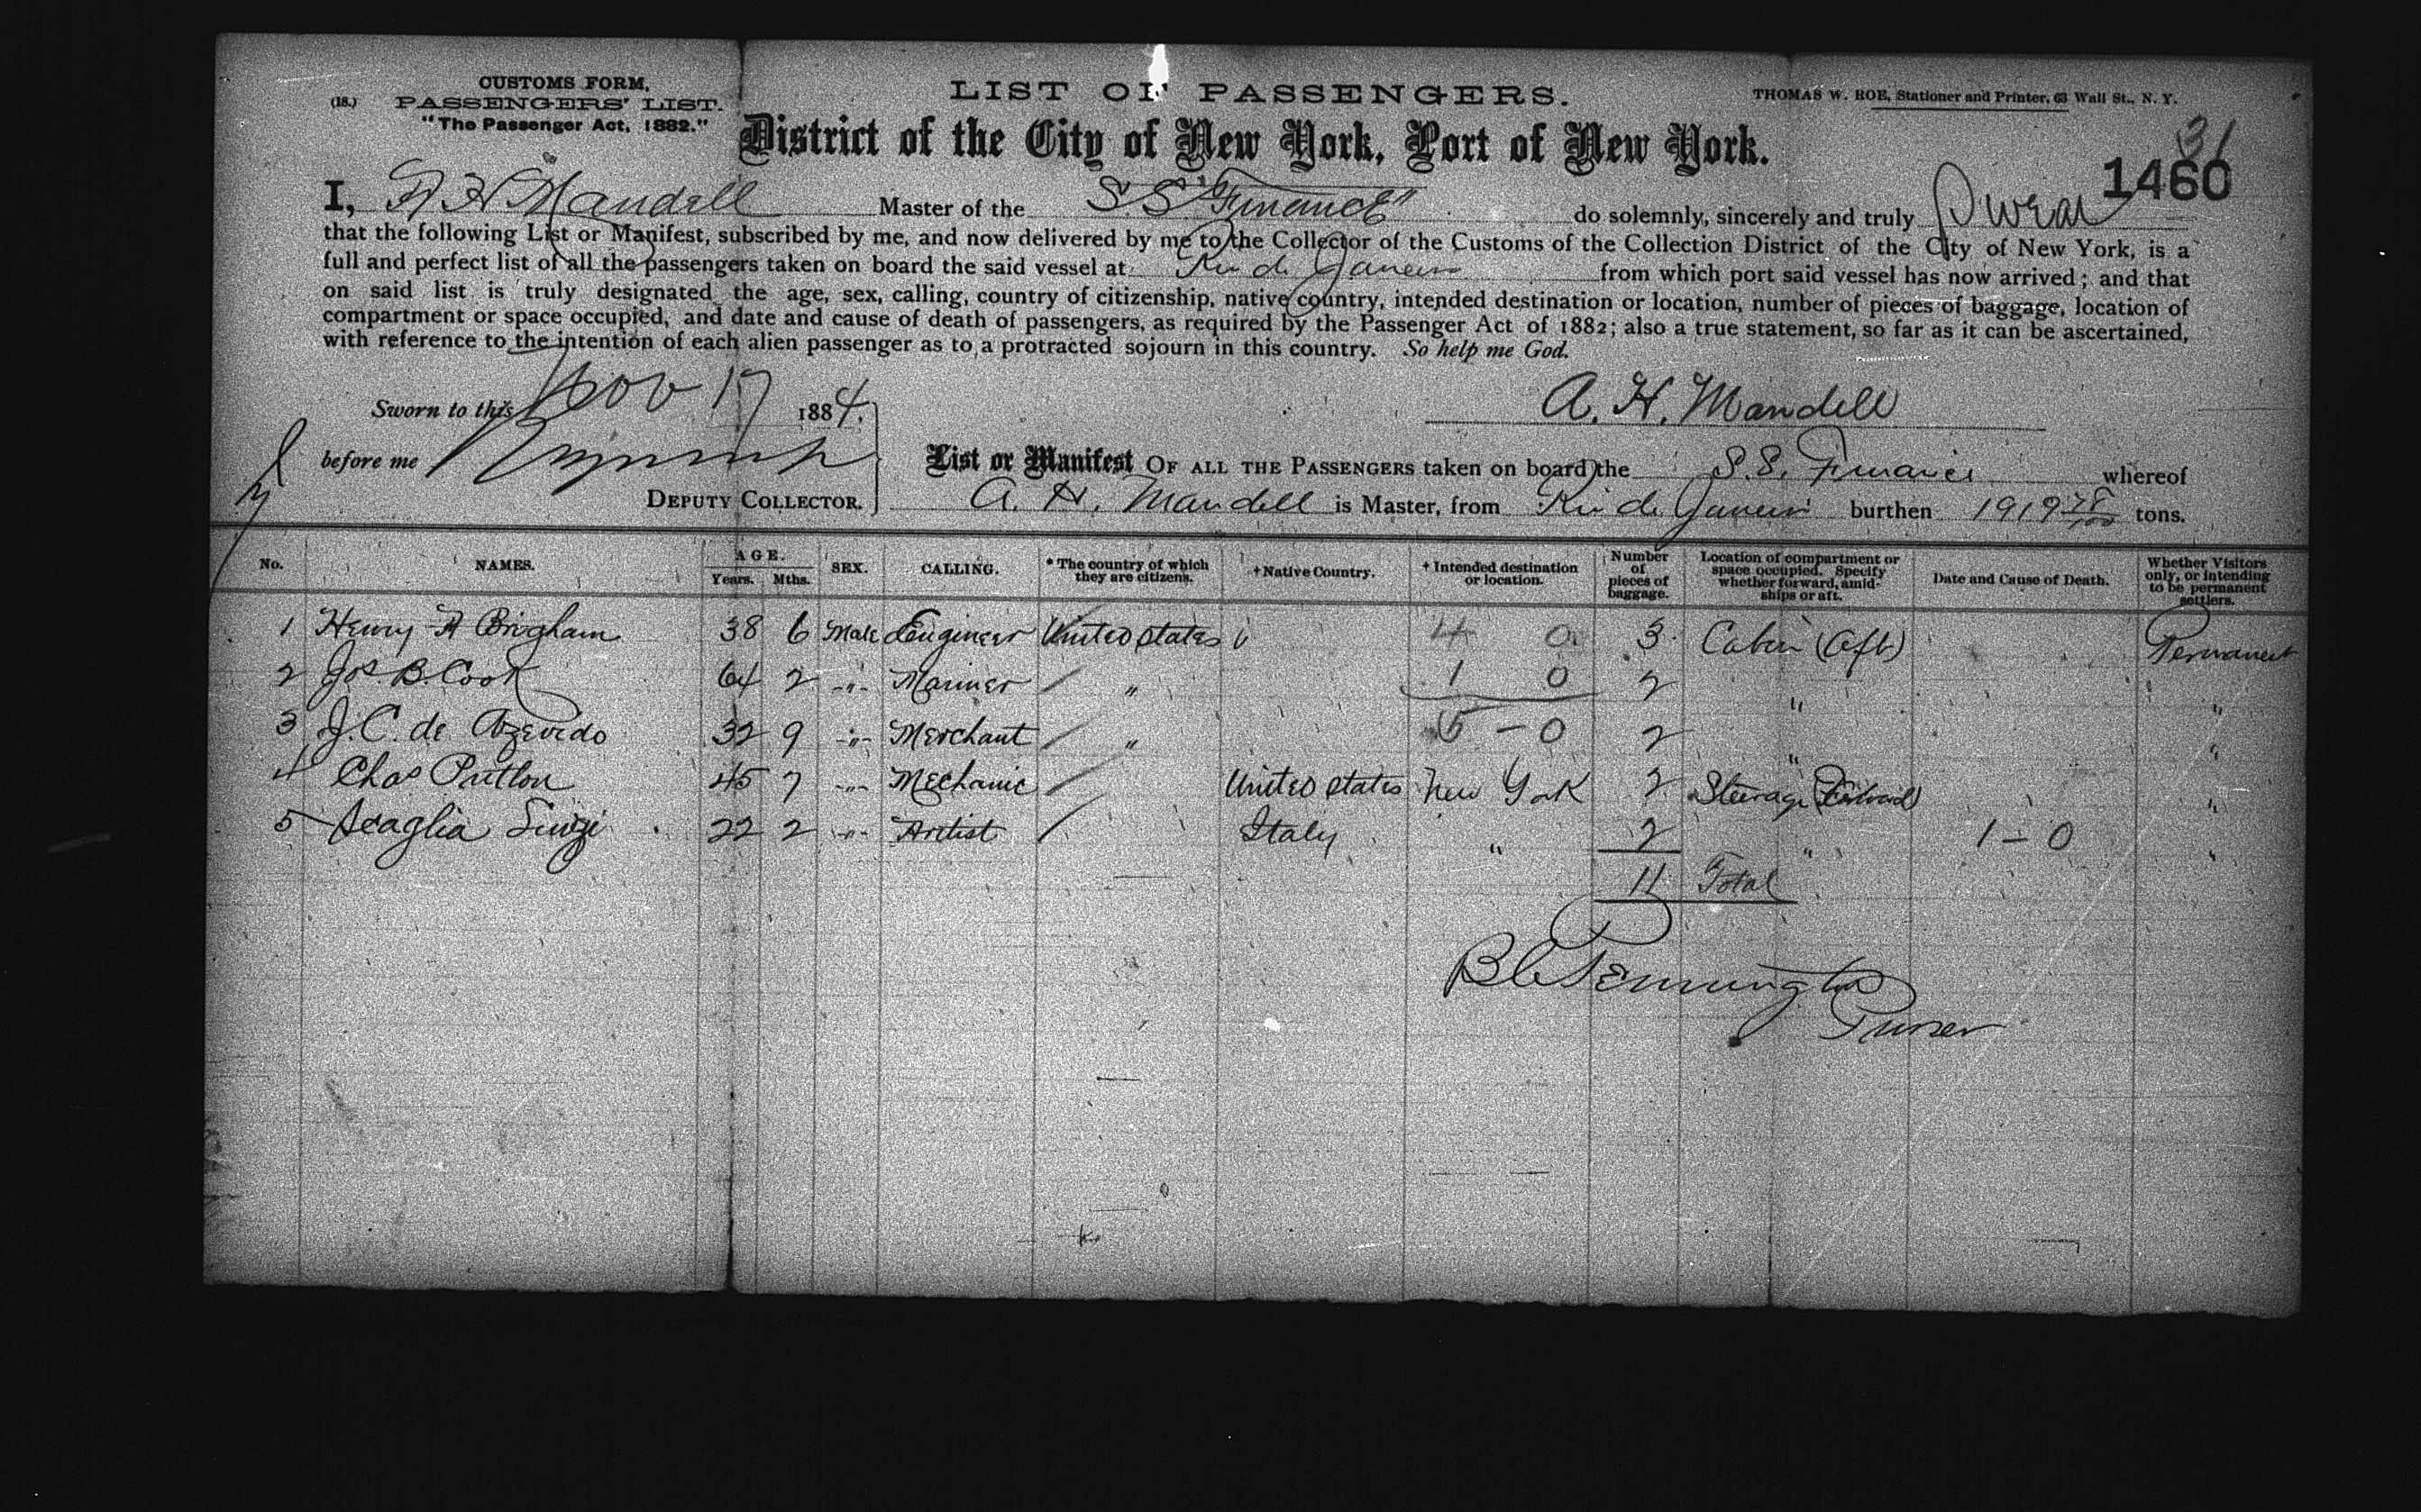 CUSTOMS FORM.
(18.) PASSENGERS' LIST.
"The Passenger Act, 1882."
LIST OF PASSENGERS.
THOMAS W. ROE, Stationer and Printer, 63 Wall St., N. Y.
District of the City of New York, Port of New York.
31
1460
I, A H Mandell Master of the S.S. "Finance" do solemnly, sincerely and truly swear
that the following List or Manifest, subscribed by me, and now delivered by me to the Collector of the Customs of the Collection District of the City of New York, is a
full and perfect list of all the passengers taken on board the said vessel at Rio de Janeiro from which port said vessel has now arrived; and that
on said list is truly designated the age, sex, calling, country of citizenship, native country, intended destination or location, number of pieces of baggage, location of
compartment or space occupied, and date and cause of death of passengers, as required by the Passenger Act of 1882; also a true statement, so far as it can be ascertained,
with reference to the intention of each alien passenger as to a protracted sojourn in this country. So help me God.
Sworn to this Nov 17 1884.
A. H. Mandell
before me
DEPUTY COLLECTOR.
List or Manifest OF ALL THE PASSENGERS taken on board the S.S. Finance whereof
A. H. Mandell is Master, from Rio de Janeiro burthen 1919 78/100 tons.
No. NAMES. AGE. Years. Mths. SEX. CALLING. * The country of which they are citizens. + Native Country. + Intended destination or location. Number of pieces of baggage. Location of compartment or space occupied. Specify whether forward, amidships or aft. Date and Cause of Death. Whether Visitors only, or intending to be permanent settlers.
1 Henry A Brigham 38 6 Male Engineer United States 4 0 3 Cabin (Aft) Permanent
2 Jos. B. Cook 64 2 -"- Mariner " 1 0 2 " "
3 J. C. de Azevedo 32 9 -"- Merchant " 5 - 0 2 " "
4 Chas 45 7 -"- Mechanic United States New York 2 Steerage (Forward) "
5 Scaglia Luigi 22 2 -"- Artist Italy " 2 " 1 - 0 "
11 Total
B C Pennington
Purser